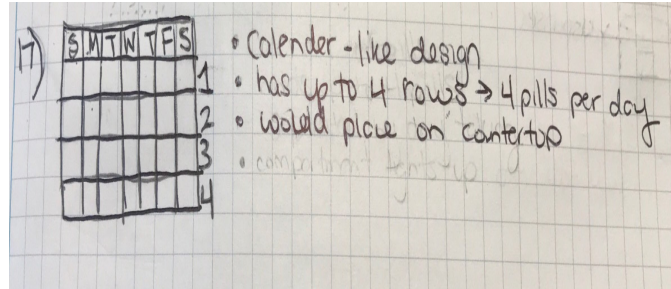 17)
S M T W T F S
• Calender-like design
1
• has up to 4 rows → 4 pills per day
2
• woould place on countertop
3
4